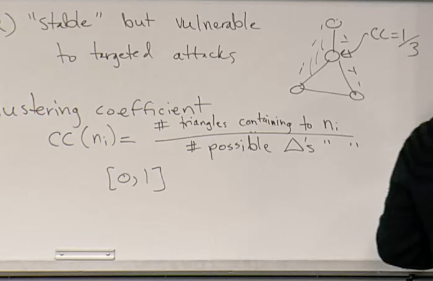 ) "stable" but vulnerable
to targeted attacks
CC=1/3
ustering coefficient
CC(ni)= # triangles containing to ni
# possible Δ's " "
[0,1]